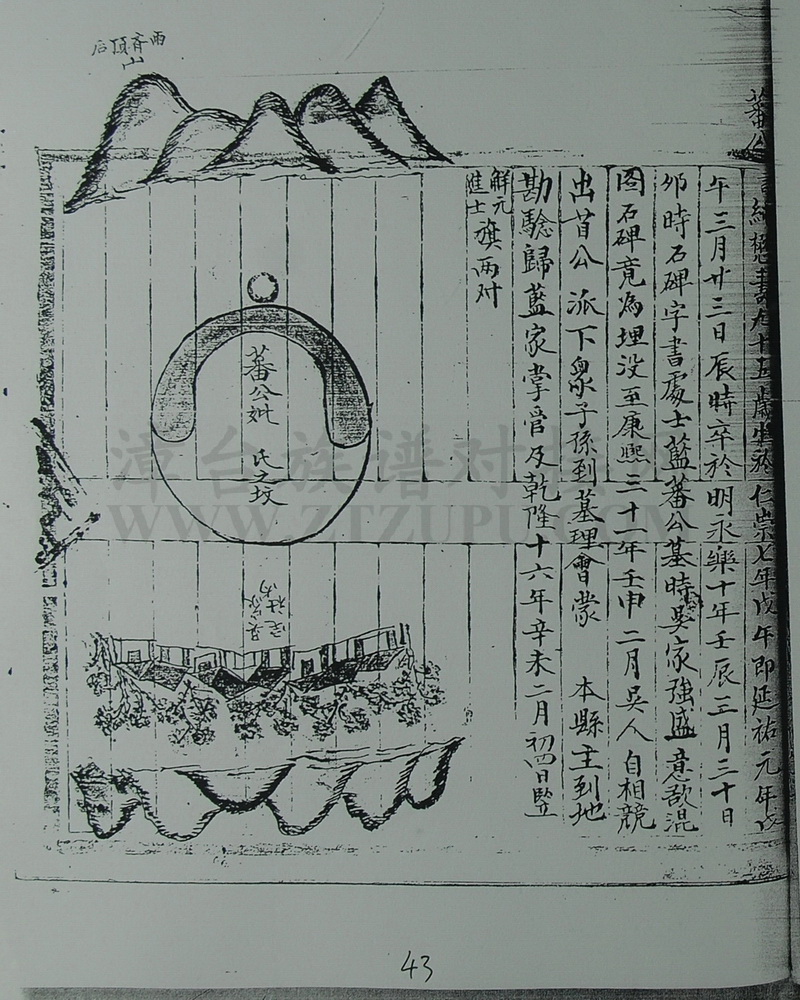 蕃公
懋壽九十五歲生於仁宗七年戊午即延祐元年
午三月廿三日辰時卒於明永樂十年壬辰三月三十日
卯時石碑字書處士藍蕃公墓時吳家強盛意欲混
圖石碑竟為埋没至康熙三十一年壬申二月吳人自相競
出首公派下眾子孫到墓理會蒙 本縣主到地
勘驗歸藍家掌管及乾隆十六年辛未二月初四日豎
解元
進士 旗兩对
雨斉頂后
山
蕃公妣 氏之坟
漳台族谱对
WWW.ZTZUPU.COM
43